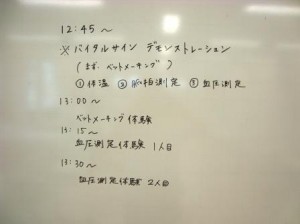 12:45～
※バイタルサイン デモンストレーション
(まず、ベットメーキング)
①体温 ②脈拍測定 ③血圧測定
13:00～
ベットメーキング体験
13:15～
血圧測定体験 1人目
13:30～
血圧測定体験 2人目